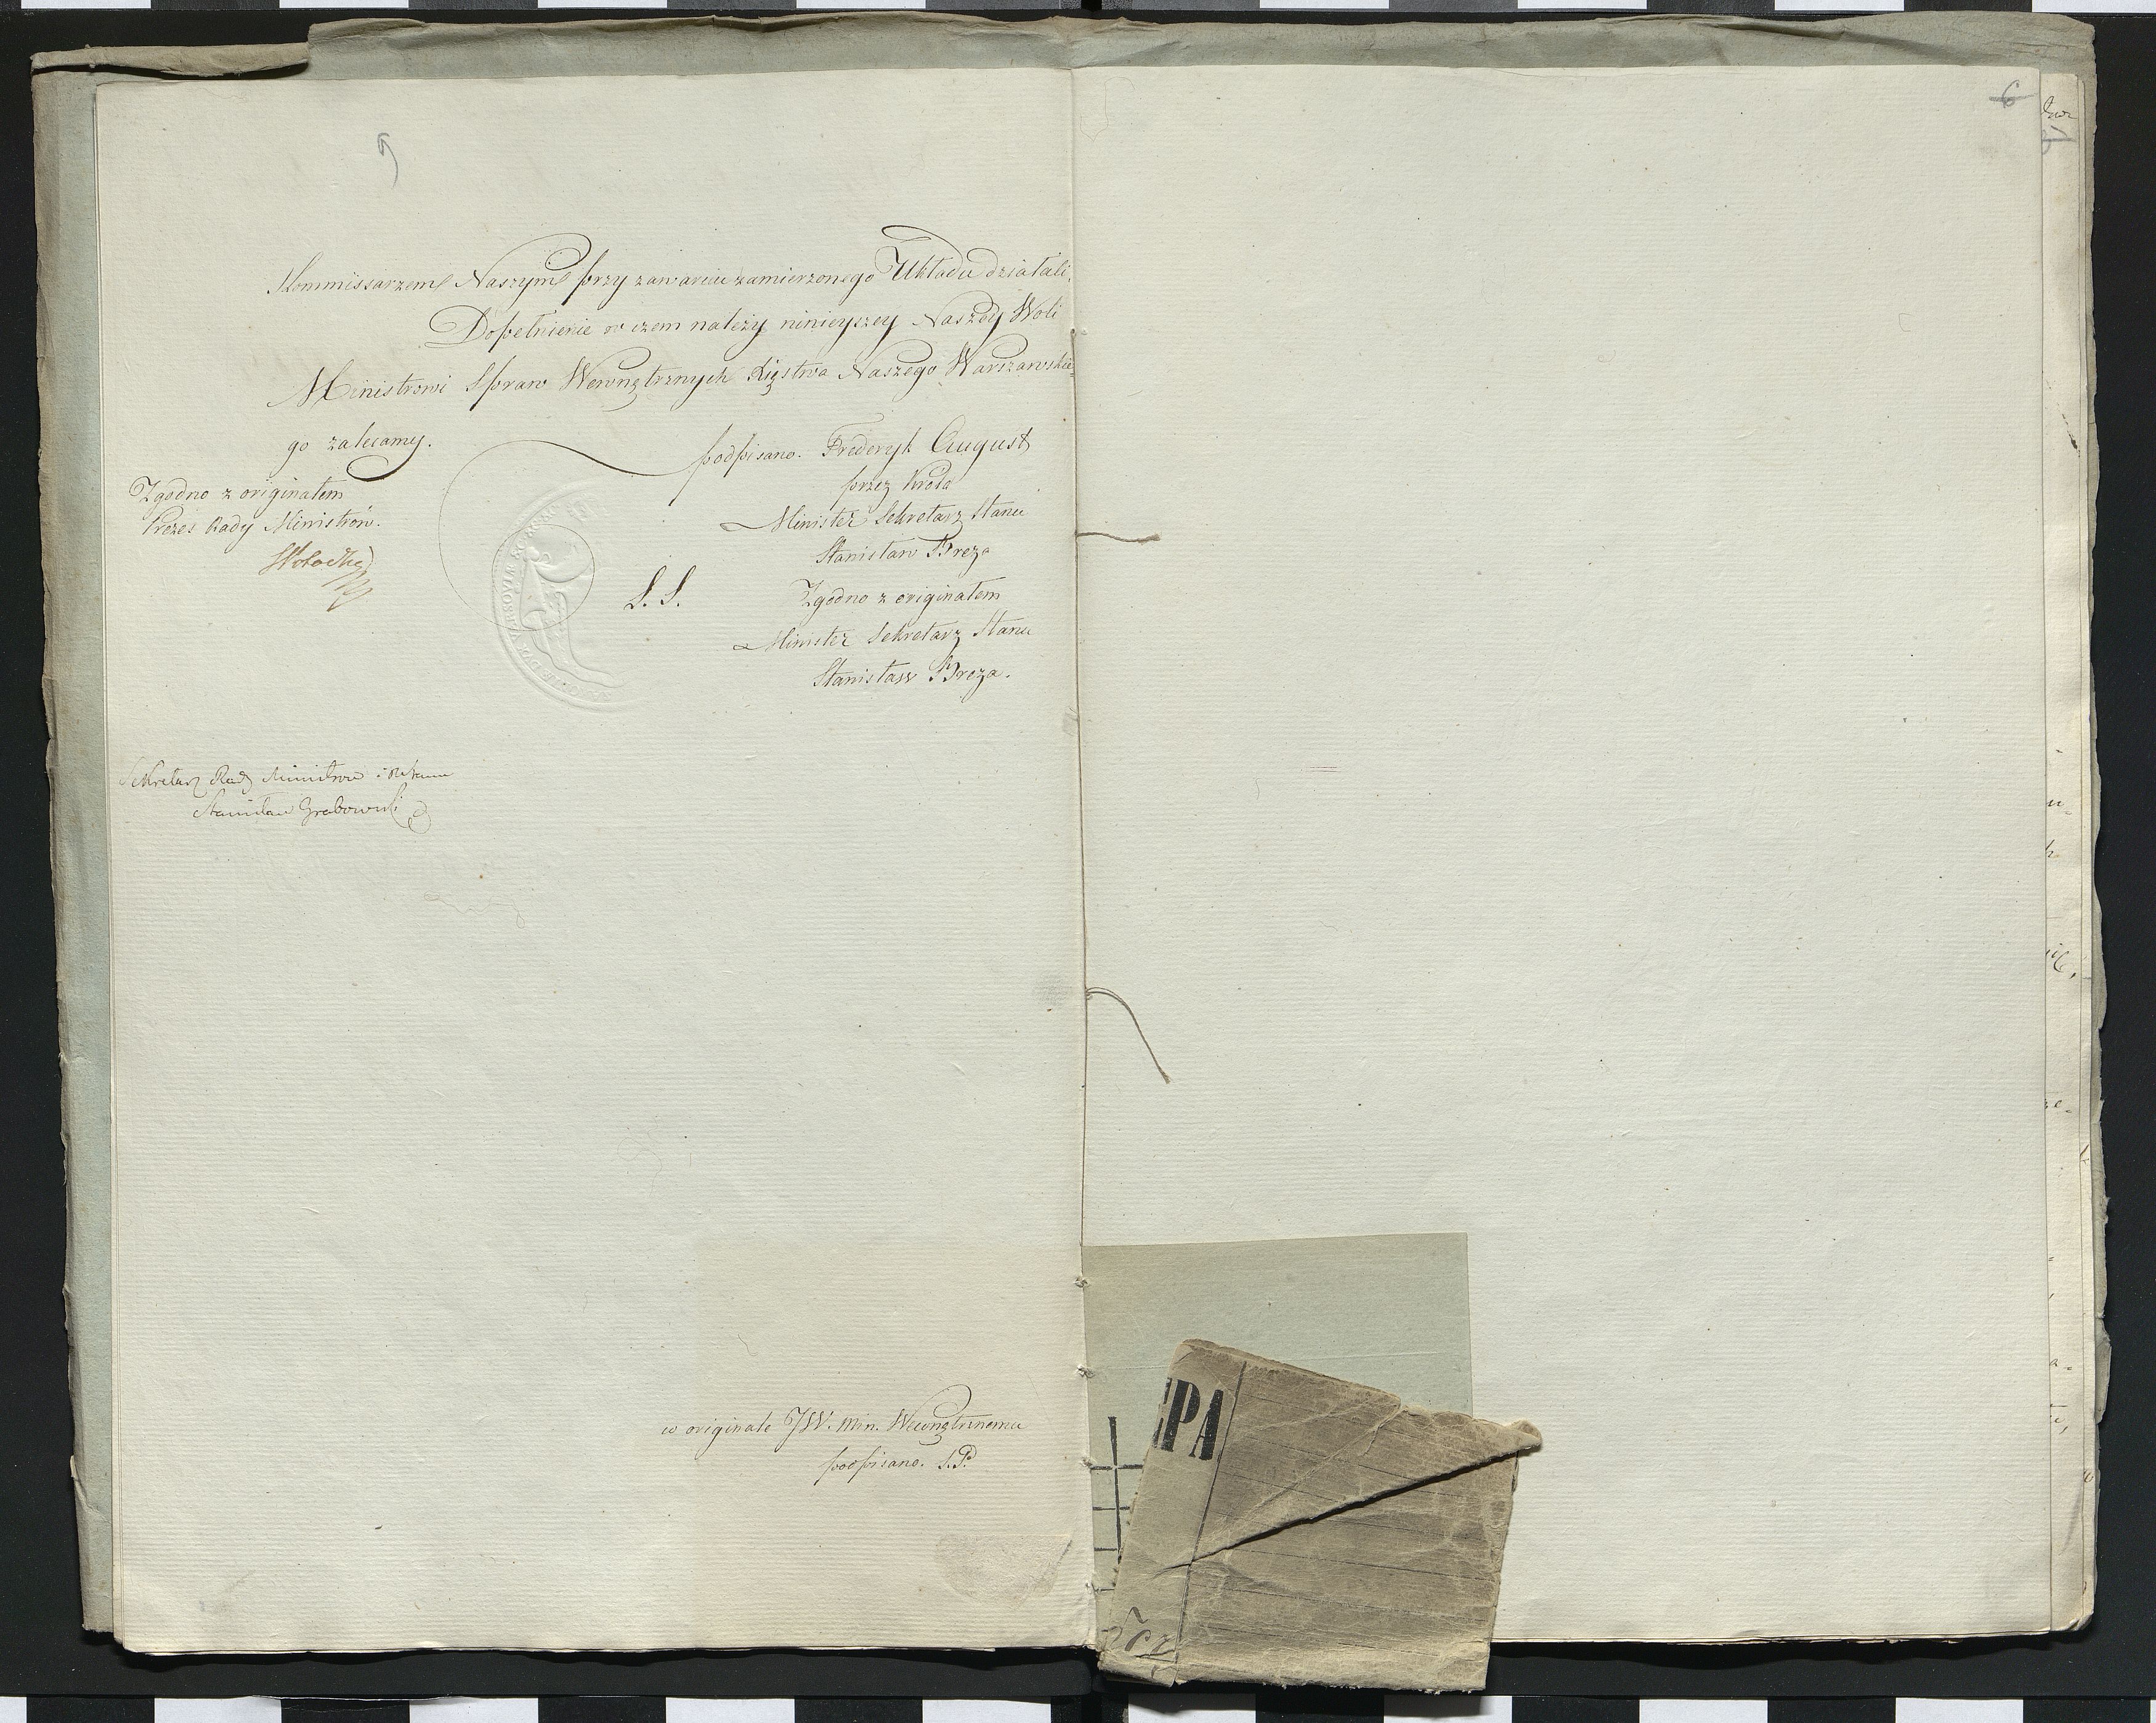 Kommissarzem Naszym przy zawarciu zamierzonego Układu działali.
Dopełnienie w czem należy ninieyszey Naszey Woli
Ministrowi Spraw Wewnętrznych Xięstwa Naszego Warszawskie=
go zalecamy.
podpisano. Frederyk August
przez Króla
Minister Sekretarz Stanu
Stanisław Breza
L. S.
Zgodno z originałem
Minister Sekretarz Stanu
Stanisław Breza.
Zgodno z originałem
Prezes Rady Ministrów.
Sekretarz Rady Ministrów
Stanisław Grabowski
w originale JW. Min. Wewnętrznemu
podpisano. S.P.
6
EPA